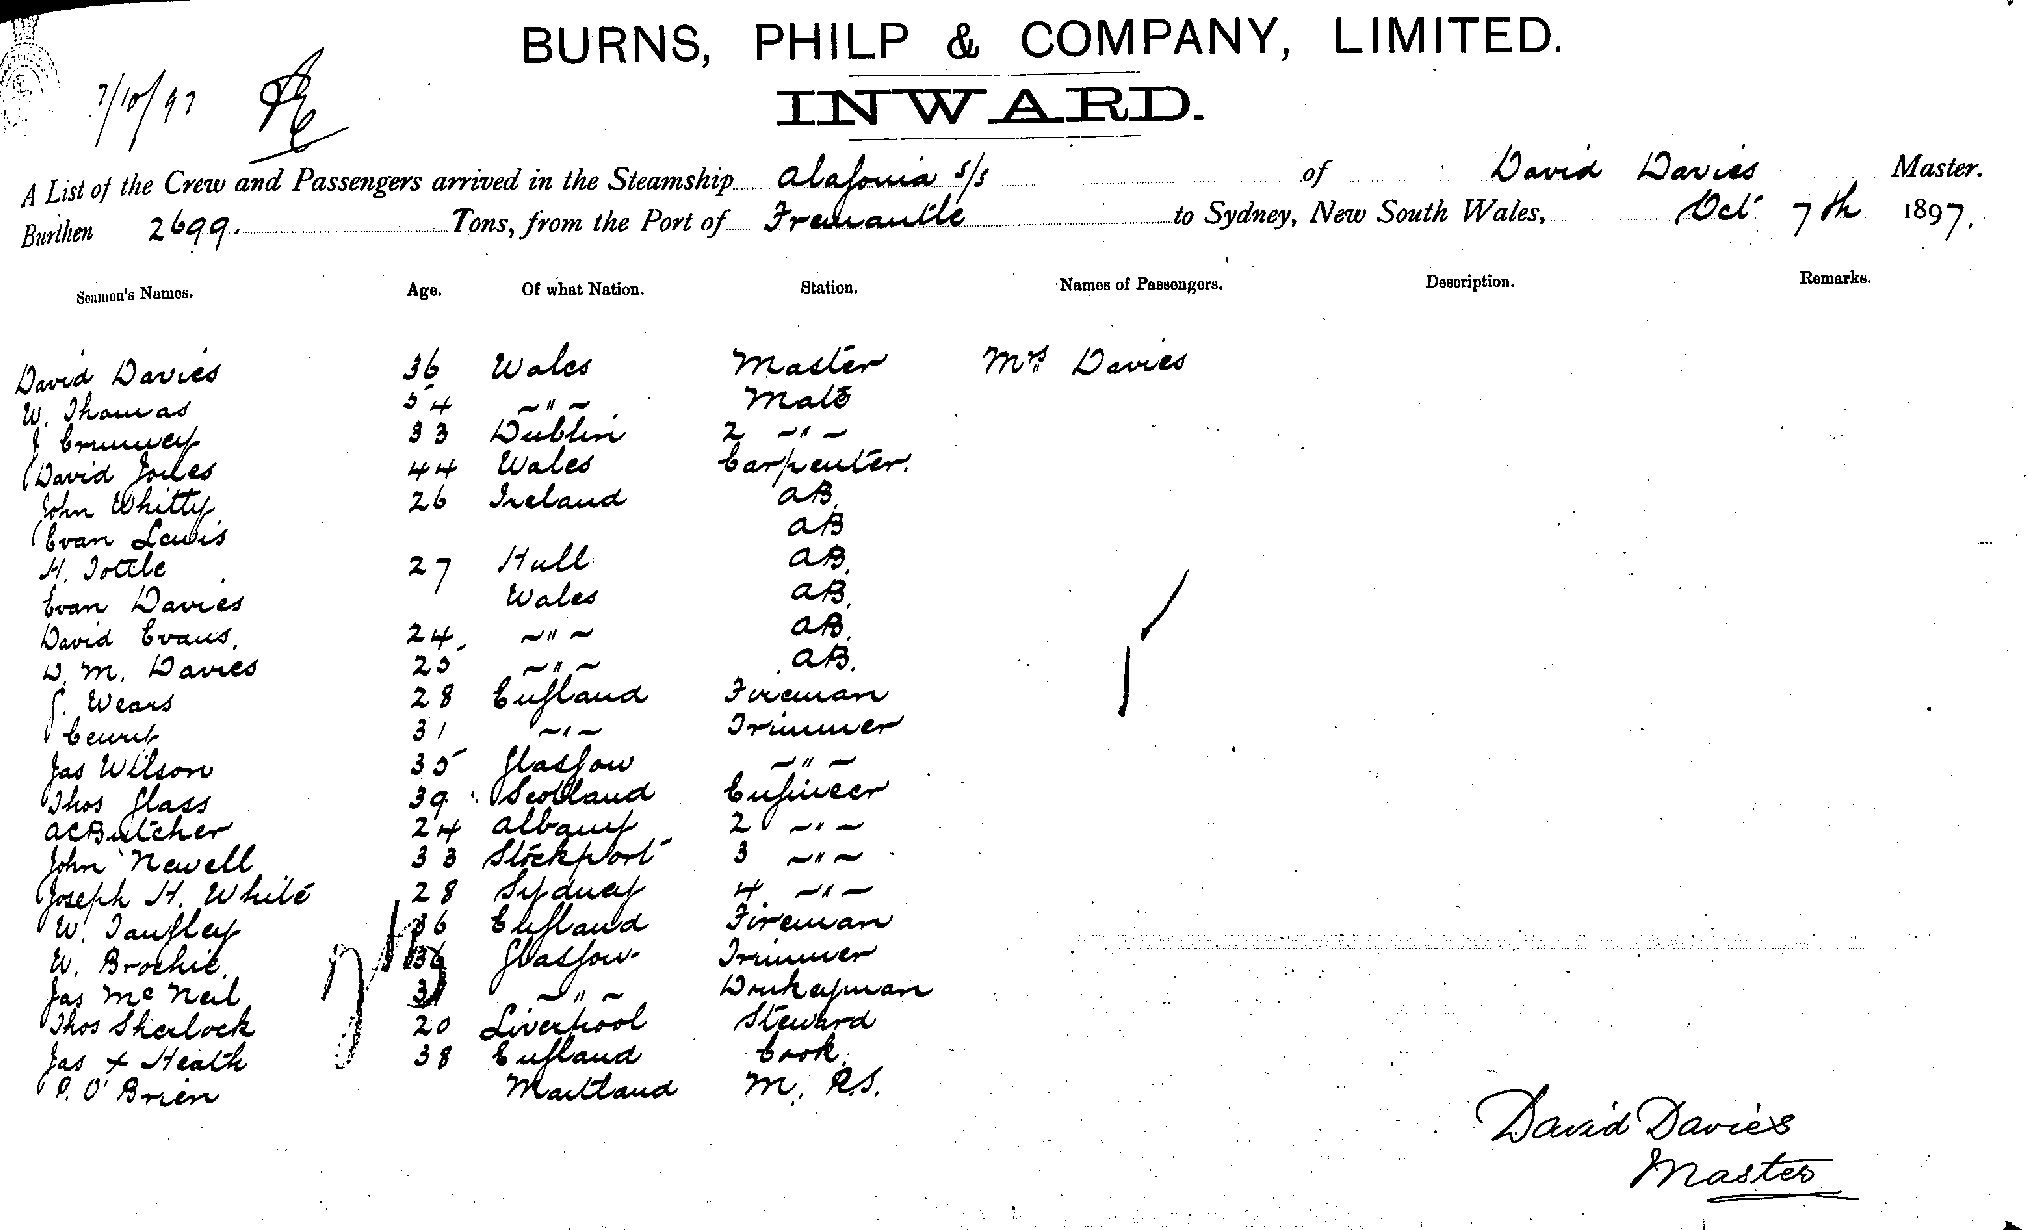 BURNS, PHILP & COMPANY, LIMITED.
7/10/97
INWARD.
A List of the Crew and Passengers arrived in the Steamship Alafonia s/s of David Davies Master.
Burthen 2699. Tons, from the Port of Fremantle to Sydney, New South Wales, Oct 7th 1897.
Seamen's Names. Age. Of what Nation. Station. Names of Passengers. Description. Remarks.
David Davies 36 Wales Master Mrs Davies
W. Thomas 54 ~"~ Mate
J Crumney 33 Dublin 2 ~"~
David Jones 44 Wales Carpenter.
John Whitty 26 Ireland AB.
Evan Lewis AB
H. Tottle 27 Hull AB.
Evan Davies Wales AB.
David Evans. 24 ~"~ AB.
D. M. Davies 25 ~"~ AB.
Wears 28 England Fireman
31 ~"~ Trimmer
Jas Wilson 35 Glasgow ~"~
Thos Glass 39 Scotland Engineer
AC Butcher 24 Albany 2 ~"~
John Newell 33 Stockport 3 ~"~
Joseph H. White 28 Sydney 4 ~"~
W. Tangley 36 England Fireman
W. Brochie. 36 Glasgow Trimmer
Jas McNeil ~"~ Donkeyman
Thos Sherlock 20 Liverpool Steward
Jas + Heath 38 England Cook.
P. O'Brien Maitland M. R.S.
David Davies
Master